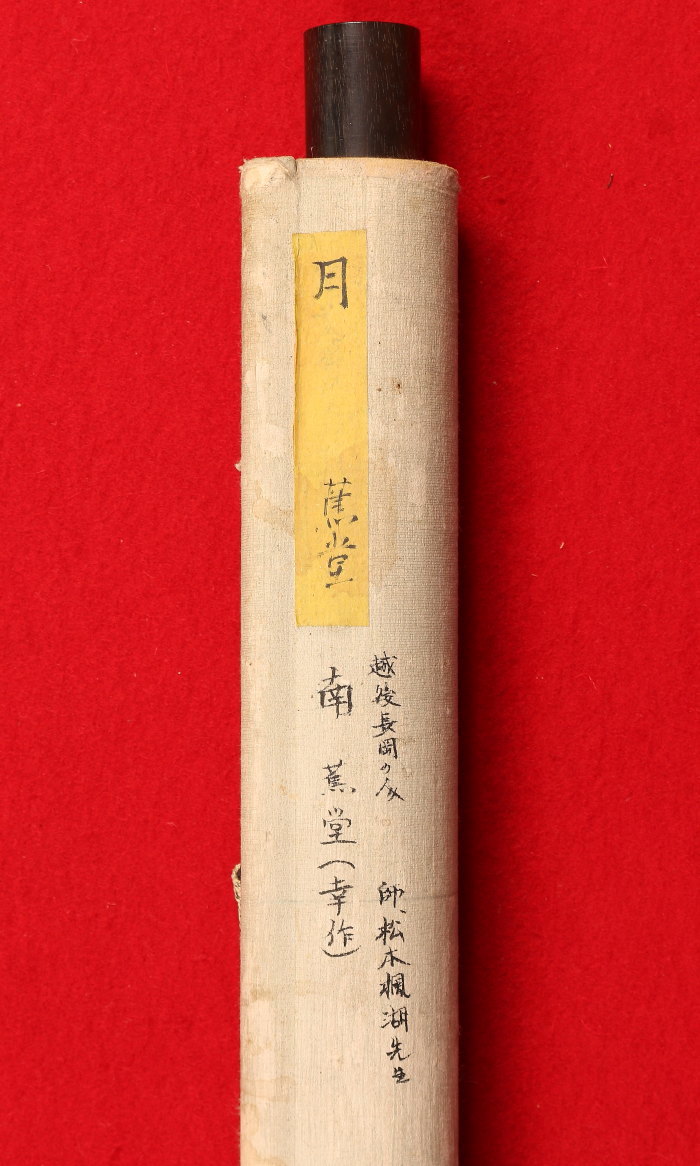 越後長岡の人　師、松本楓湖先生
月　蕉堂
南　蕉堂(幸作)